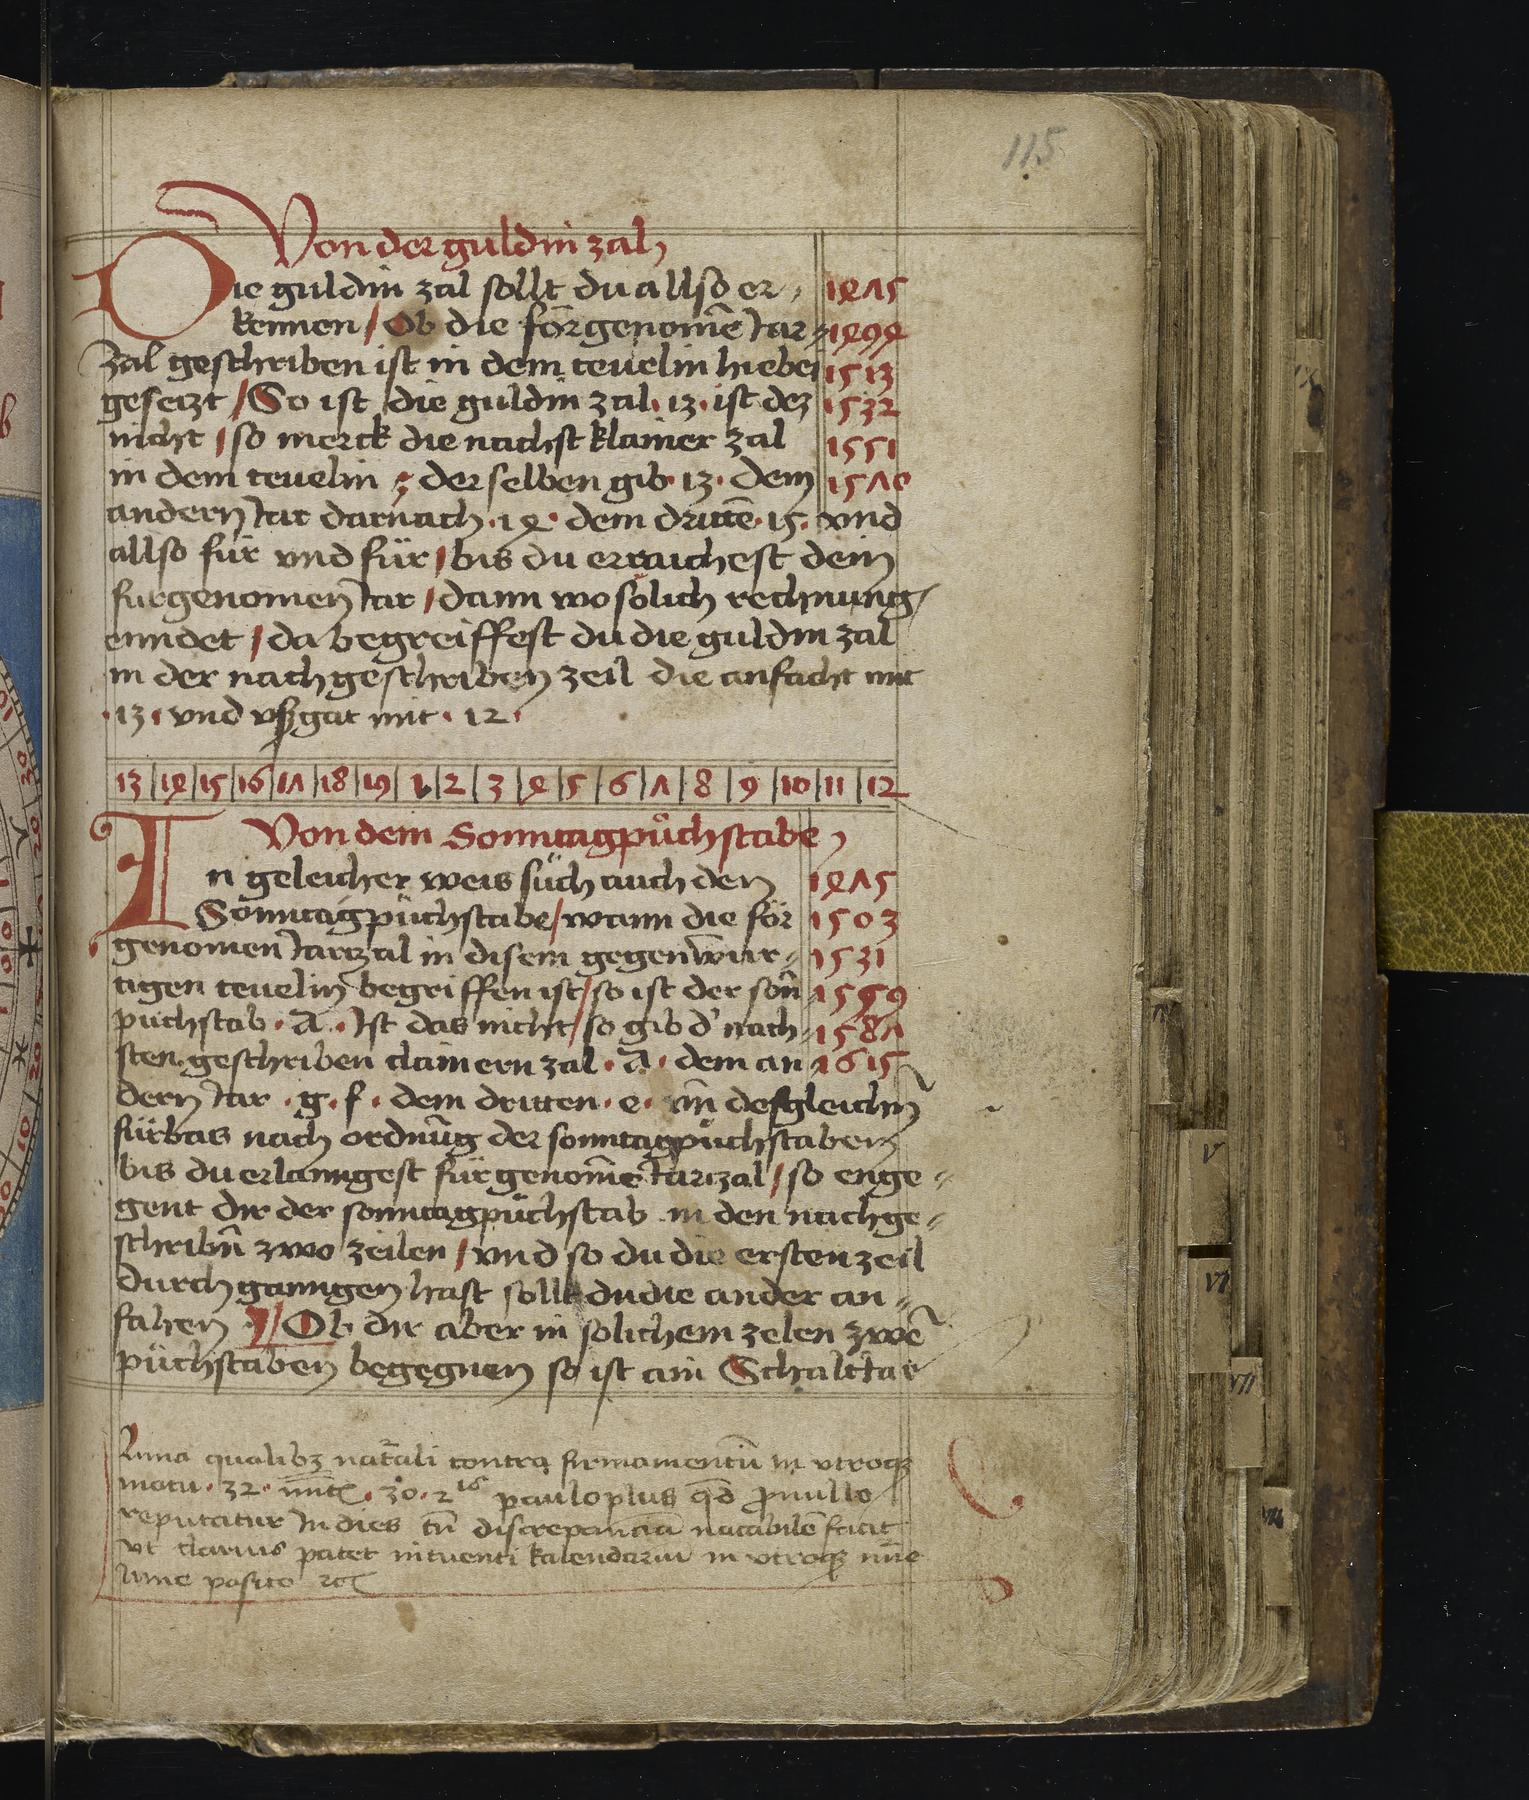 115
Von der guldin zal
Die guldin zal sollt du allso er-
kennen / Ob die förgenomē Iar-
zal geschriben ist in dem teuelin hiebei
gesetzt / So ist die guldin zal · 13 · ist dez
nicht / so merck die nachst klainer zal
in dem teuelin der selben gib · 13 · dem
andern Iar darnach · 14 · dem drittē · 15 · vnd
allso für vnd für / bis du erraichest dein
fürgenomen Iar / dann wo sölich rechnung
enndet / da begreiffest du die guldin zal
in der nachgeschriben zeil die anfacht mit
· 13 · vnd vßgat mit · 12 ·
1475
1494
1513
1532
1551
1570
13 | 14 | 15 | 16 | 17 | 18 | 19 | 1 | 2 | 3 | 4 | 5 | 6 | 7 | 8 | 9 | 10 | 11 | 12
Von dem Sonntagpůchstaben
In geleicher weis sůch auch den
Sonntagpůchstabe / wann die för
genomen Iarzal in disem gegenwür-
tigen teuelin begriffen ist / so ist der son̄
půchstab · A · Ist das nicht / so gib d' nach-
sten geschriben clainern zal · A · dem an
dern Iar · g · f · dem dritten · e · vn̄ desgleichn̄
fürbas nach ordnūg der sonntagpůchstaben
bis du erlanngest fürgenom̄e Iarzal / so enge-
gent dir der sonntagpůchstab in den nachge-
schribn̄ zwo zeilen / vnd so du die ersten zeil
durch ganngen hast sollt du die ander an-
fahen / Ob dir aber in solichem zelen zwē
půchstaben begegnen so ist ain Schaltiar
1475
1503
1531
1559
1587
1615
Luna qualibz nat̄ali contra firmamentū in vtroqz
motu · 32 · · 30 · 2 paulo plus q̄d p̄ nullo
reputatur In dies tn̄ discrepanciā notabilē facit
vt clarius patet intuenti kalendariū in vtroqz
lune posito
V
VI
VII